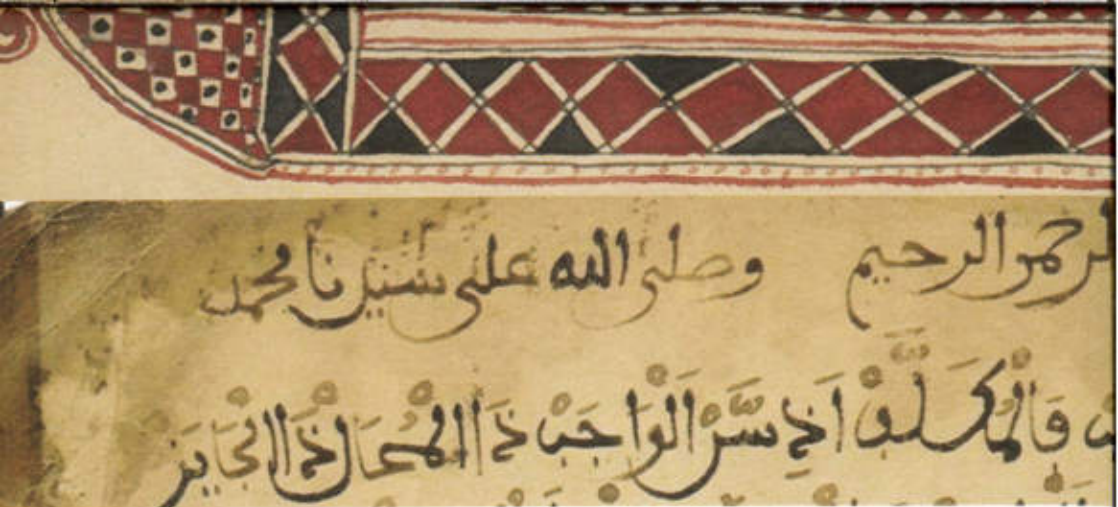 الرحمن الرحيم وصلى الله على سيدنا محمد
فَالْمُكَلَّفْ اَذِسَّنْ الْوَاجَبْ ذَا الْمُحَالْ ذَا الْجَايَزْ